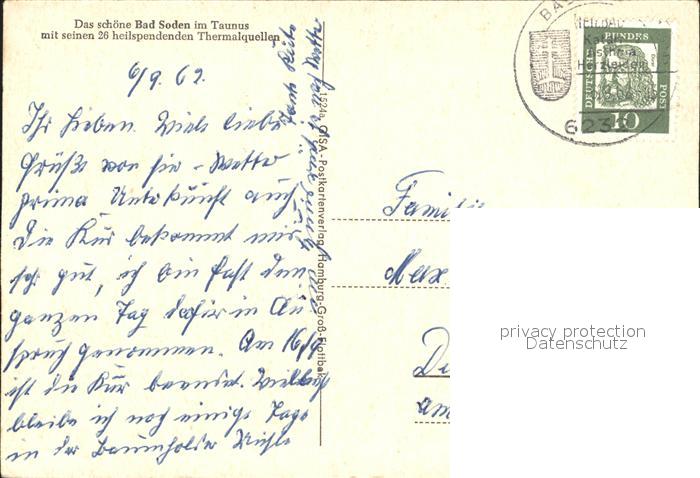 Das schöne Bad Soden im Taunus
mit seinen 26 heilspendenden Thermalquellen
6/9. 62.
Ihr Lieben. Viele liebe
Grüße von hier – Wetter
prima Unterkunft auch
Die Kur bekommt mir
sehr gut, ich bin fast den
ganzen Tag dafür in An
spruch genommen. Am 16/9
ist die Kur beendet. Vielleicht
bleibe ich noch einige Tage
in der
1524a, Postkartenverlag, Hamburg-Groß-Flottbek
DEUTSCHE BUNDES POST
10
623
Familie
Max
privacy protection
Datenschutz